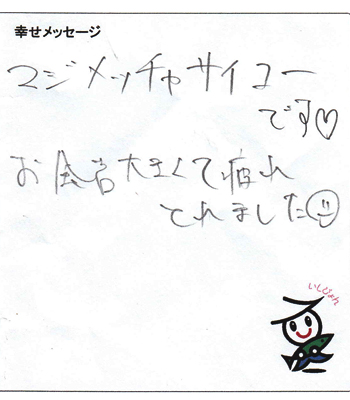 幸せメッセージ
マジメッチャサイコー
です♡
お風呂大きくて疲れ
とれました☺
いしじょれ